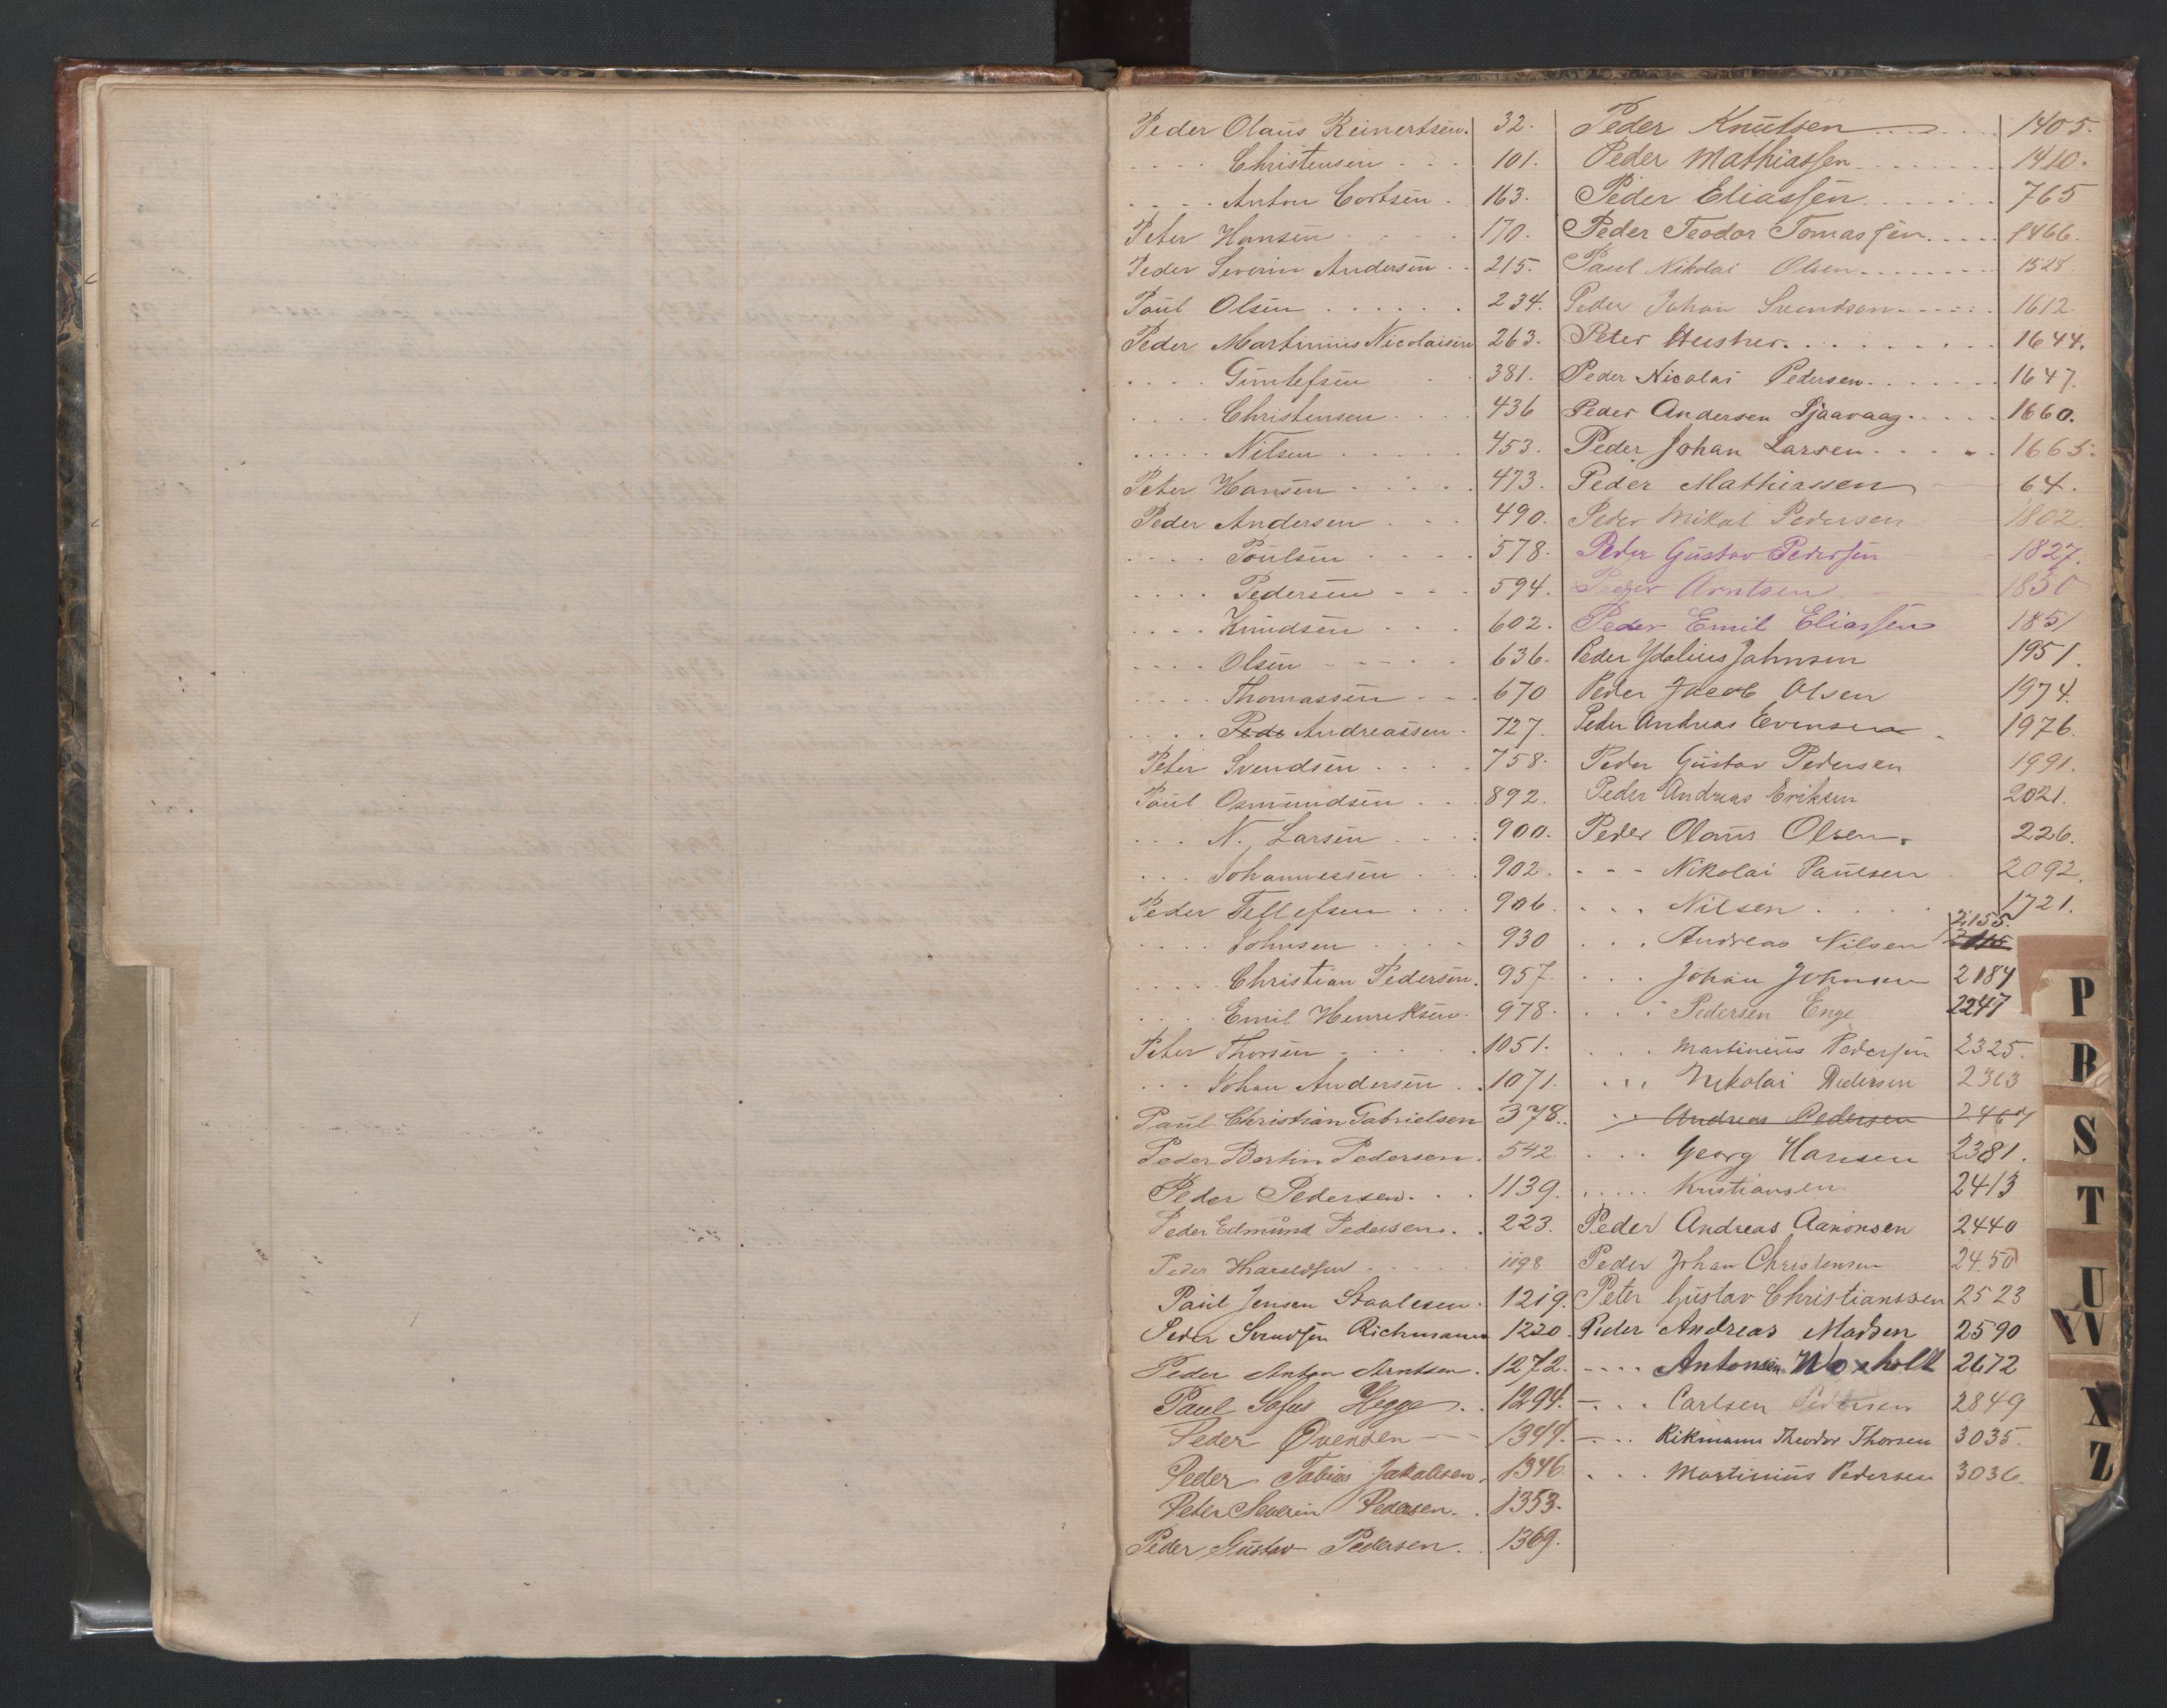 Peder Olaus Reinertsen. 32.
.... Christensen ... 101.
.... Anton Cortsen . 163.
Peter Hansen .... 170.
Peder Severin Andersen .. 215.
Paul Olsen ...... 234.
Peder Martinius Nicolaisen 263.
.... Guntefsen .. 381.
.... Christensen .... 436
..... Nilsen ..... 453.
Peter Hansen ..... 473.
Peder Andersen ... 490.
.... Poulsen .... 578.
.... Pedersen - - - 594.
.... Knudsen ... 602.
.... Olsen ..... 636.
.... Thomassen - - . 670
.... Pede Andreassen . 727.
Peter Svendsen .... 758.
Paul Osmundsen ... 892.
... N. Larsen .... 900.
... Johannessen ... 902.
Peder Tellefsen ... 906.
.... Johnsen .... 930
..... Christian Pedersen. 957.
.... Emil Henriksen. 978.
Peter Thorsen ..... 1051.
... Johan Andersen .. 1071.
Paul Christian Gabrielsen 378..
Peder Bertin Pedersen. 542.
Peder Pedersen. .. 1139.
Peder Edmund Pedersen. . 223.
Peder Haraldsen ..... 1198
Paul Jensen Staalesen. 1219.
Peder Svendsen Richmann 1220.
Peder Anton Arntsen. 1272.
Paul Sofus Hegge .. 1294.
Peder Ovensen -- 1344.
Peder Tobias Jakobsen. 1346.
Peter Severin Pedersen. . 1353.
Peder Gustav Pedersen. . 1369.
Peder Knutsen ...... 1405.
Peder Mathiassen ....... 1410.
Peder Eliassen ....... 765
Peder Teodor Tomassen ..... 1466.
Paul Nikolai Olsen ........ 1528.
Peder Johan Svendsen ...... 1612.
Peter ......... 1644.
Peder Nicolai Pedersen ....... 1647.
Peder Andersen Sjaavaag ..... 1660.
Peder Johan Larsen ..... 1665.
Peder Mathiassen 64.
Peder Mikal Pedersen 1802.
Peder Gustav Pedersen 1827.
Peder Arntsen 1850
Peder Emil Eliassen 1851
Peder Ydalius Jahnsen 1951.
Peder Jacob Olsen 1974.
Peder Andreas Evensen . 1976.
Peder Gustav Pedersen 1991.
Peder Andreas Eriksen 2021.
Peder Olaus Olsen. 226.
- - - Nikolai Paulsen 2092.
... Nilsen .... 1721.
... Andreas Nilsen 2155.
... Johan Johnsen 2184
... Pedersen Enge 2247
... Martinius Pedersen 2325.
... Nikolai Pedersen 2363
.. Andreas Pedersen 2467
... Georg Hansen 2381.
..... Kristiansen 2413
Peder Andreas Aanonsen 2440
Peder Johan Christensen 2450
Peter Gustav Christianssen 2523
Peder Andreas Madsen 2590
.... Antonsen Woxholt 2672
-... Carlsen Pedersen 2849
-... Rikmann Theodor Thorsen 3035.
... Martinius Pedersen 3036.
P
R
S
T
U
VW
X
Z